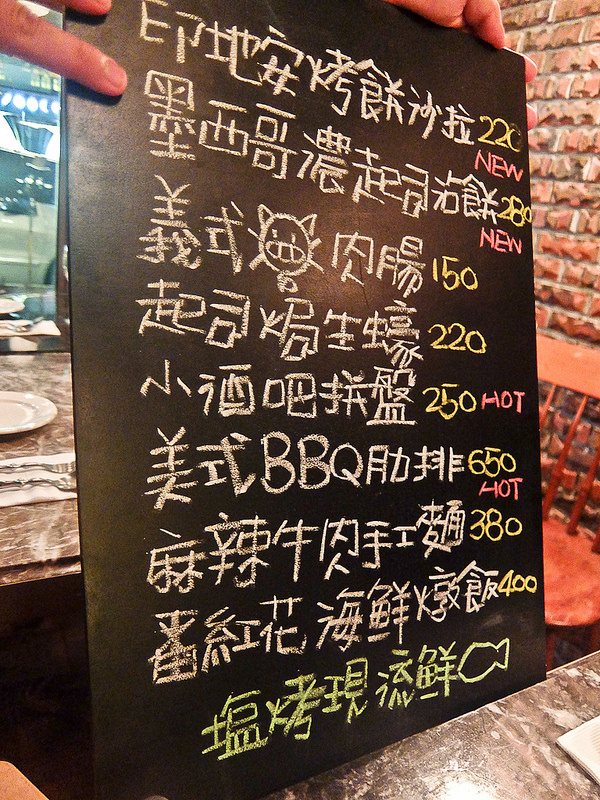 印地安烤餅沙拉 220
NEW
墨西哥濃起司沾餅 280
NEW
義式 肉腸 150
起司焗生蠔 220
小酒吧拼盤 250 HOT
美式BBQ肋排 650
HOT
麻辣牛肉手工麵 380
番紅花海鮮燉飯 400
塩烤現流鮮